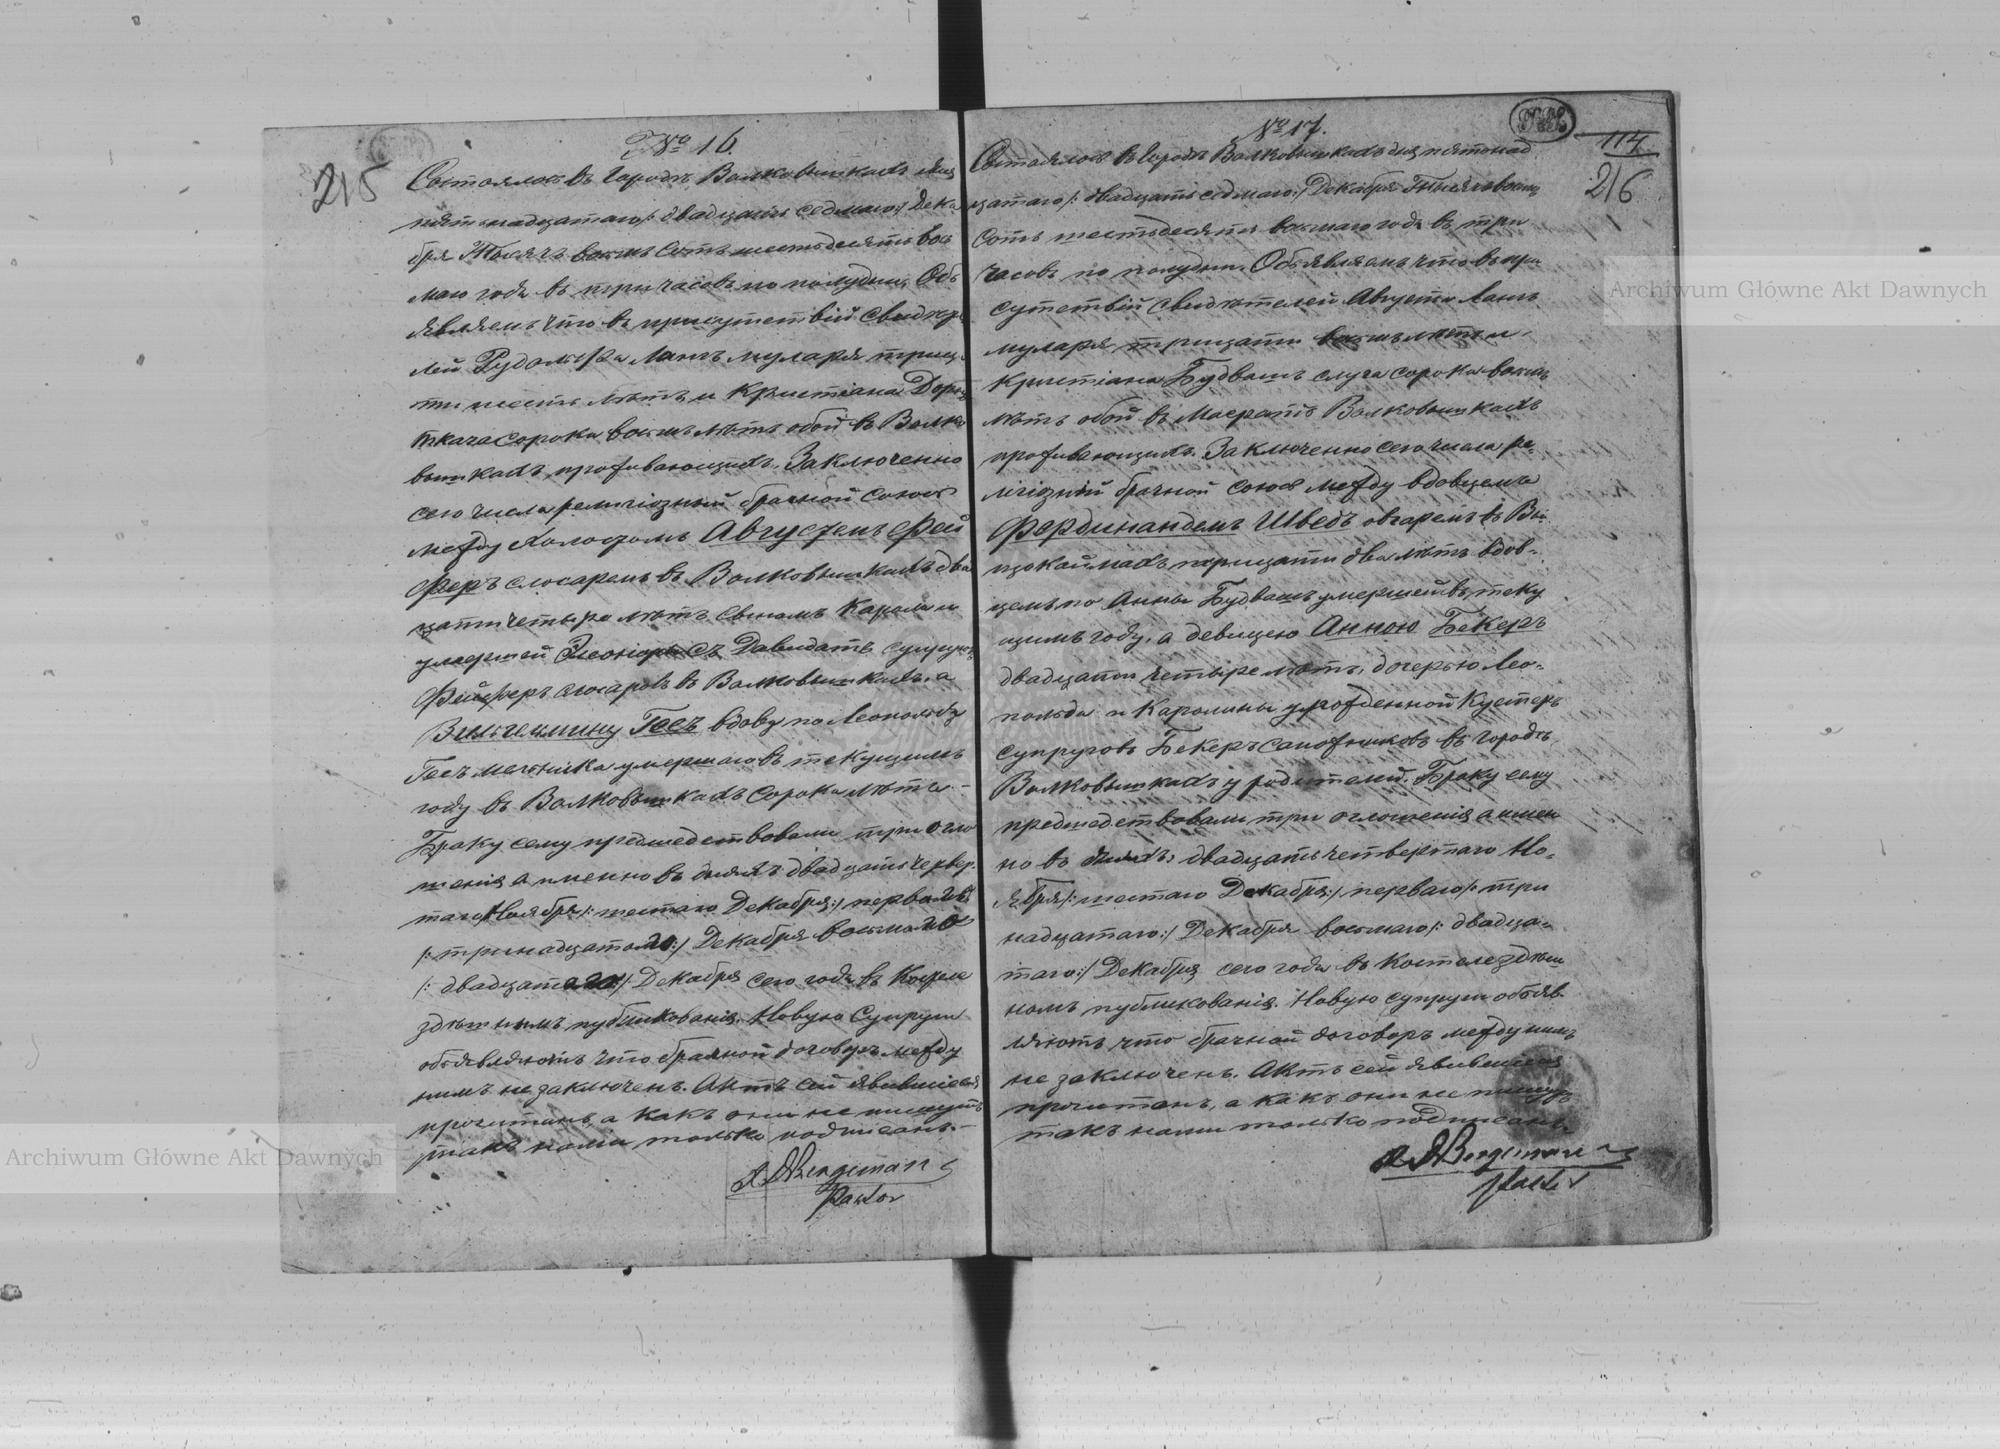 215
№ 16.
Состоялось въ Городѣ Волковышкахъ дня
пятьнадцатаго /: двадцать седмаго :/ Дека
бря Тысячъ восмь Сотъ шестьдесятъ вось
маго года въ три часовъ по полудни. Объ
являемъ что въ присутствіи Свидѣте
лей Рудольфа Лангъ муларя трицa
ти шесть лѣтъ и Кристіана
ткача сорока восмь лѣтъ обои въ Волко
вышкахъ проживающихъ. Заключенно
сего числа религіозный брачной союзъ
между холостомъ Августемъ Фей
феръ слюсаремъ въ Волковышкахъ два
цати четыре лѣтъ сыномъ Кароля и
умершей Элеоноры съ Давидатъ супруговъ
Фейферъ слюсаровъ въ Волковышкахъ, а
Вильгельмину Гесъ вдову по Леопольду
Гесъ умершаго въ текущимъ
году въ Волковышкахъ сорока лѣтъ -
Браку сему предшедствовали три огло
шенія а именно въ дняхъ двадцать четвер
таго Ноября /: шестаго Декабря :/ перваго
/: тринадцатого :/ Декабря восьмаго
/: двадцатаго :/ Декабря сего года въ Костеле
здѣшнымъ публикованія. Новую Супруги
объявляютъ что брачной договоръ между
нимъ не заключенъ. Актъ сей явившіеся
прочитанъ, а какъ они не пишутъ
такъ нами только подписанъ. -
Bergeman
Pastor
№ 17.
114
216
Состоялось въ Городѣ Волковышкахъ дня пятонад
цатаго /: двадцать седмаго :/ Декабря Тысяча восмь
Сотъ шестьдесятъ восмаго года въ три
часовъ по полудни. Объявляемъ что въ при
сутствій свидѣтелей Августа Лангъ
муларя трицати восмь лѣтъ и
Кристіана Будвашъ слуга сорока восмь
лѣтъ обой въ Волковышкахъ
проживающихъ. Заключенно сего числа ре-
лигіозній брачной союзъ между вдовцемъ
Фердинандемъ Шведъ овчаремъ въ
трицати два лѣтъ вдов-
цемъ по Анны Будвашъ умершей въ теку
щимъ году, а девицею Анною Бекеръ
двадцати четыре лѣтъ, дочерью Лео-
польда и Каролины урожденной Кустеръ
супруговъ Бекеръ сапожниковъ въ городѣ
Волковышкахъ у родителей. Браку сему
предшедствовали три оглошенія а имен
но въ дняхъ: двадцать четвертаго Но-
ября /: шестаго Декабря :/ перваго /: три
надцатаго :/ Декабря восьмаго /: двадца-
таго :/ Декабря сего года въ Костеле здѣш
номъ публикованія. Новую супруги объяв-
ляютъ что брачной договоръ между нимъ
не заключенъ. Актъ сей явившіеся
прочитанъ, а какъ они не пишутъ
такъ нами только подписанъ.
Bergeman
Pastor
Archiwum Główne Akt Dawnych
Archiwum Główne Akt Dawnych